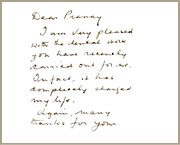 Dear Pranay
I am very pleased
with the dental work
you have recently
carried out for me.
Infact, it has
completely changed
my life.
Again, many
thanks for your